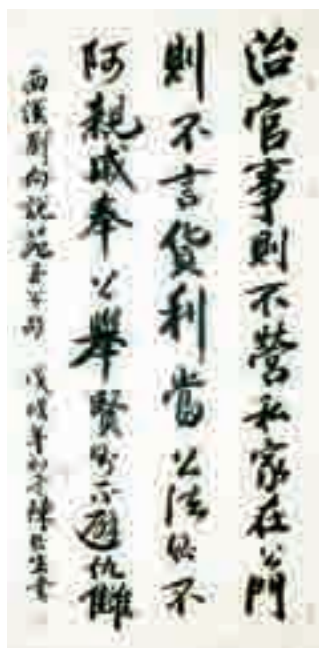 治官事則不營私家在公門
則不言貨利當公法則不
阿親戚奉公舉賢則不避仇讎
西漢劉向說苑至公 戊戌年初冬陳書